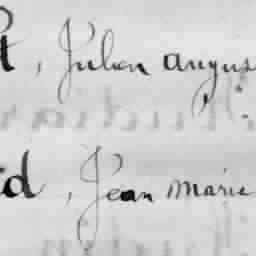 t, Julien Augus
id, Jean Marie